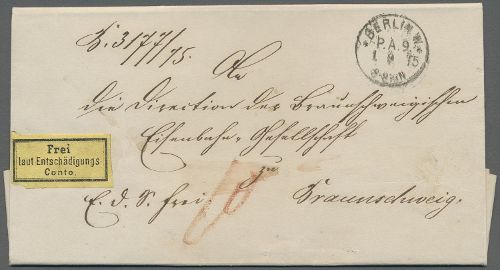 B. 3177/75.
* BERLIN W. *
P.A. 9.
1 9 75
8-9 N
An
die Direction der Braunschweigischen
Eisenbahn-Gesellschaft
zu
Braunschweig.
E. d. S. frei
Frei
laut Entschädigungs
Conto.